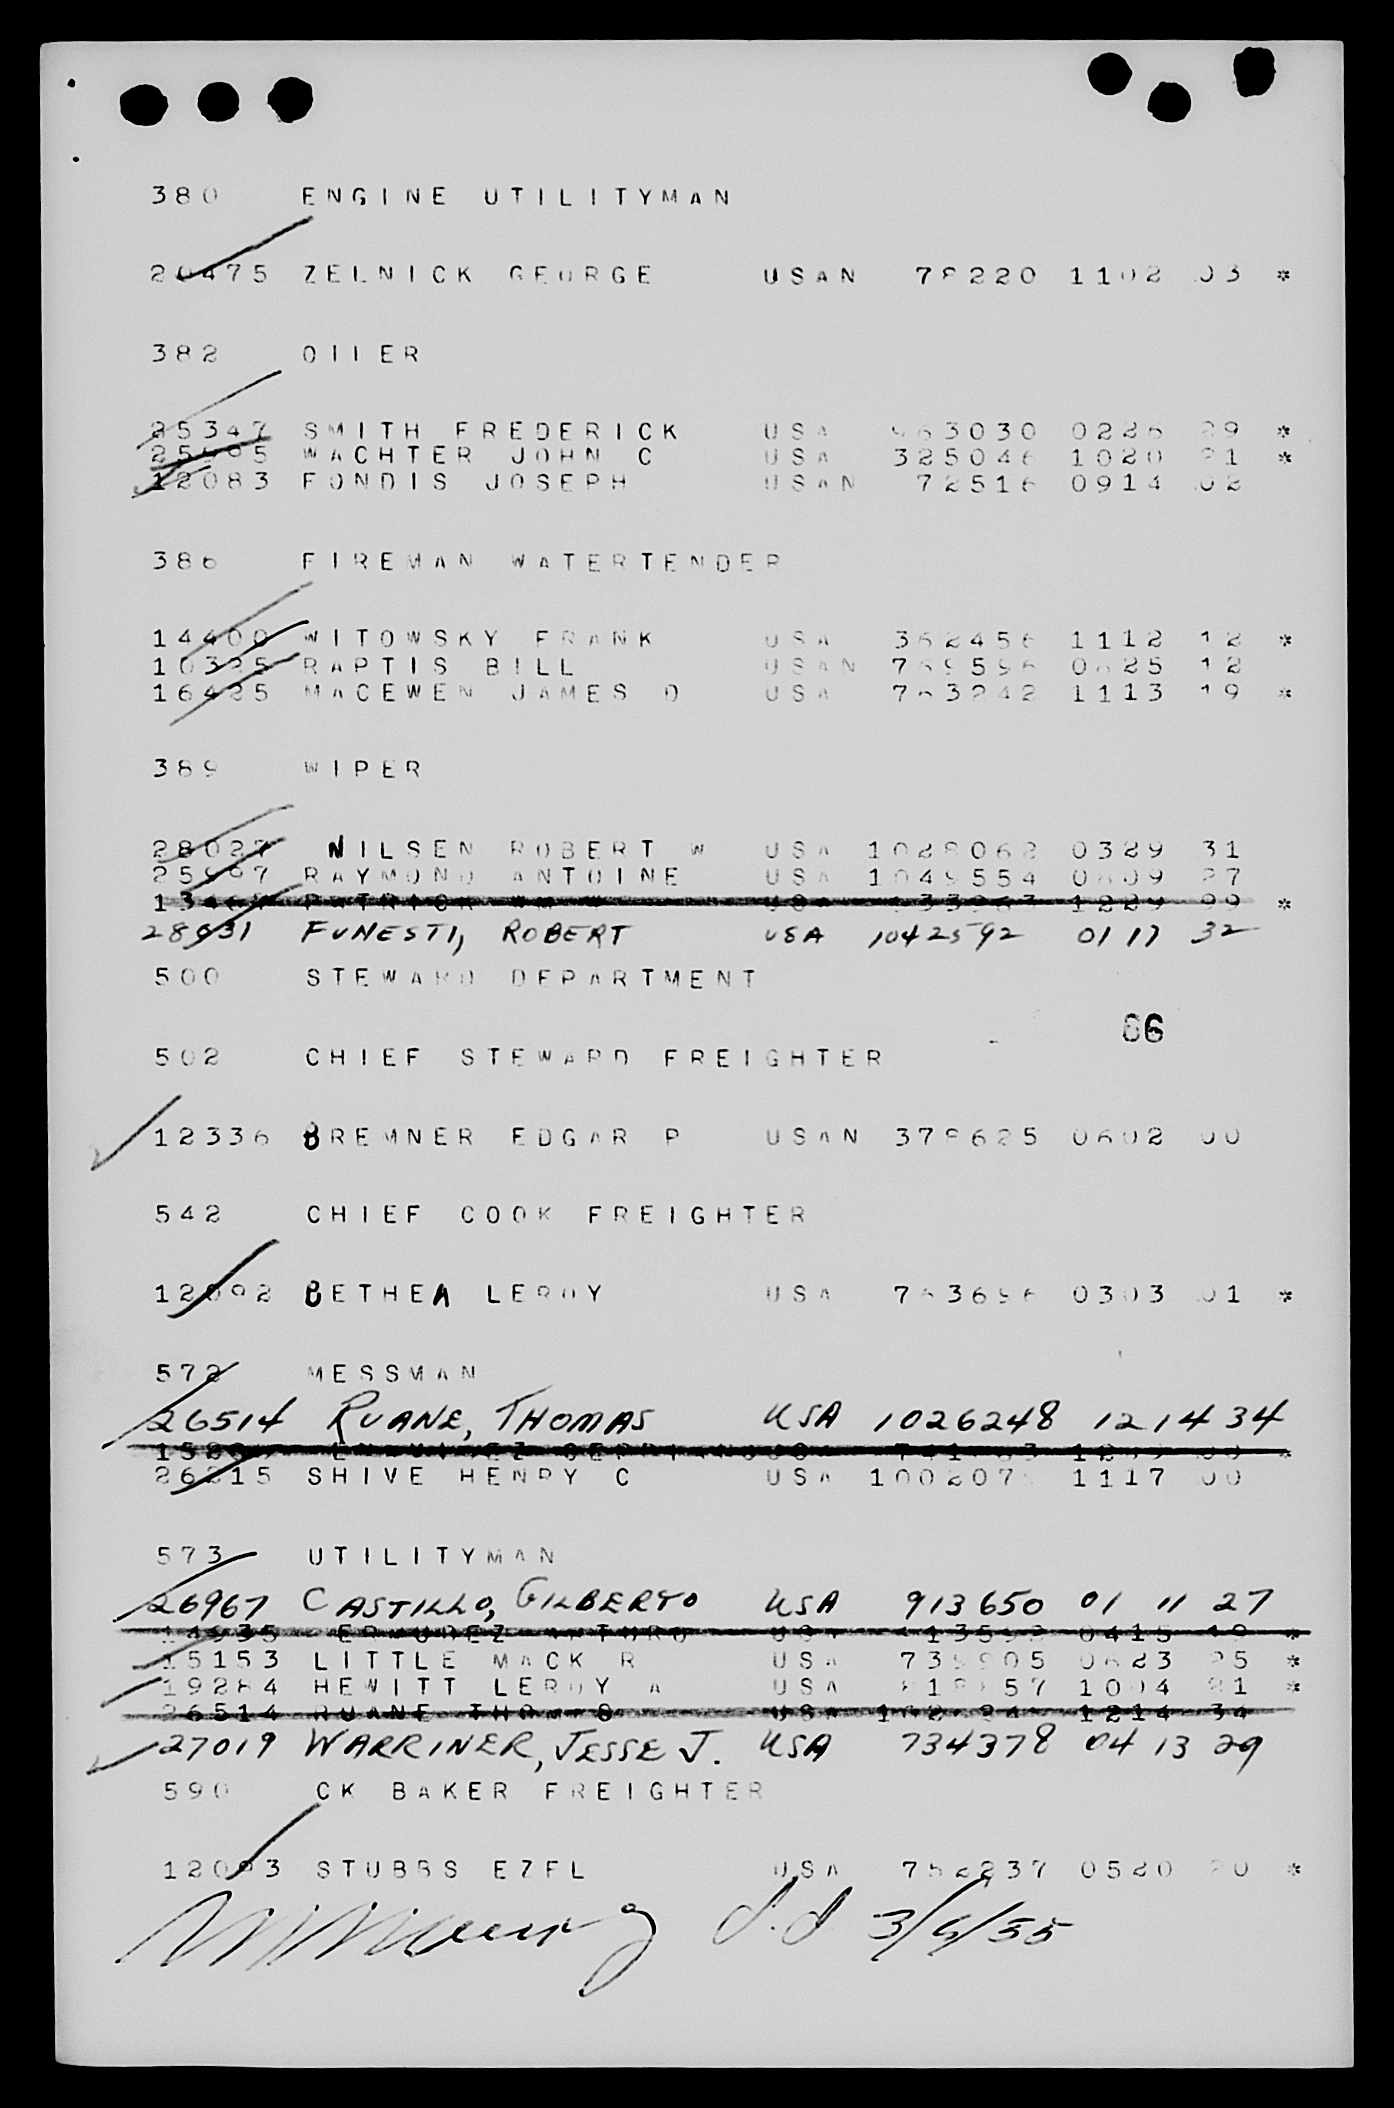 380 ENGINE UTILITYMAN
20475 ZELNICK GEORGE USAN 78220 1102 03 *
382 OILER
25347 SMITH FREDERICK USA 963030 0226 29 *
25995 WACHTER JOHN C USA 325046 1020 21 *
12083 FONDIS JOSEPH USAN 72516 0914 02
386 FIREMAN WATERTENDER
14400 WITOWSKY FRANK USA 362456 1112 12 *
10325 RAPTIS BILL USAN 769596 0625 12
16425 MACEWEN JAMES D USA 763242 1113 19 *
389 WIPER
28027 NILSEN ROBERT W USA 1028062 0329 31
25997 RAYMOND ANTOINE USA 1049554 0609 27
USA 1229 99 *
28931 FUNESTI, ROBERT USA 1042592 01 17 32
500 STEWARD DEPARTMENT
66
502 CHIEF STEWARD FREIGHTER
12336 BREMNER EDGAR P USAN 378625 0602 00
542 CHIEF COOK FREIGHTER
12092 BETHEA LEROY USA 763696 0303 01 *
572 MESSMAN
26514 RUANE, THOMAS USA 1026248 12 14 34
26215 SHIVE HENRY C USA 1117 00
573 UTILITYMAN
26967 CASTILLO, GILBERTO USA 913650 01 11 27
0415 19 *
15153 LITTLE MACK R USA 739905 0623 25 *
19284 HEWITT LEROY A USA 1004 21 *
26514 RUANE THOMAS USA 1214 34
27019 WARRINER, JESSE J. USA 734378 04 13 29
590 CK BAKER FREIGHTER
12093 STUBBS EZEL USA 752237 0520 20 *